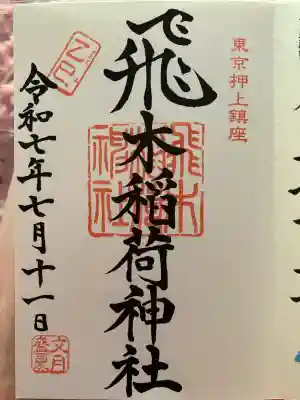 東京押上鎮座
飛木稲荷神社
飛木
稲荷
神社
令和七年七月十一日
文月